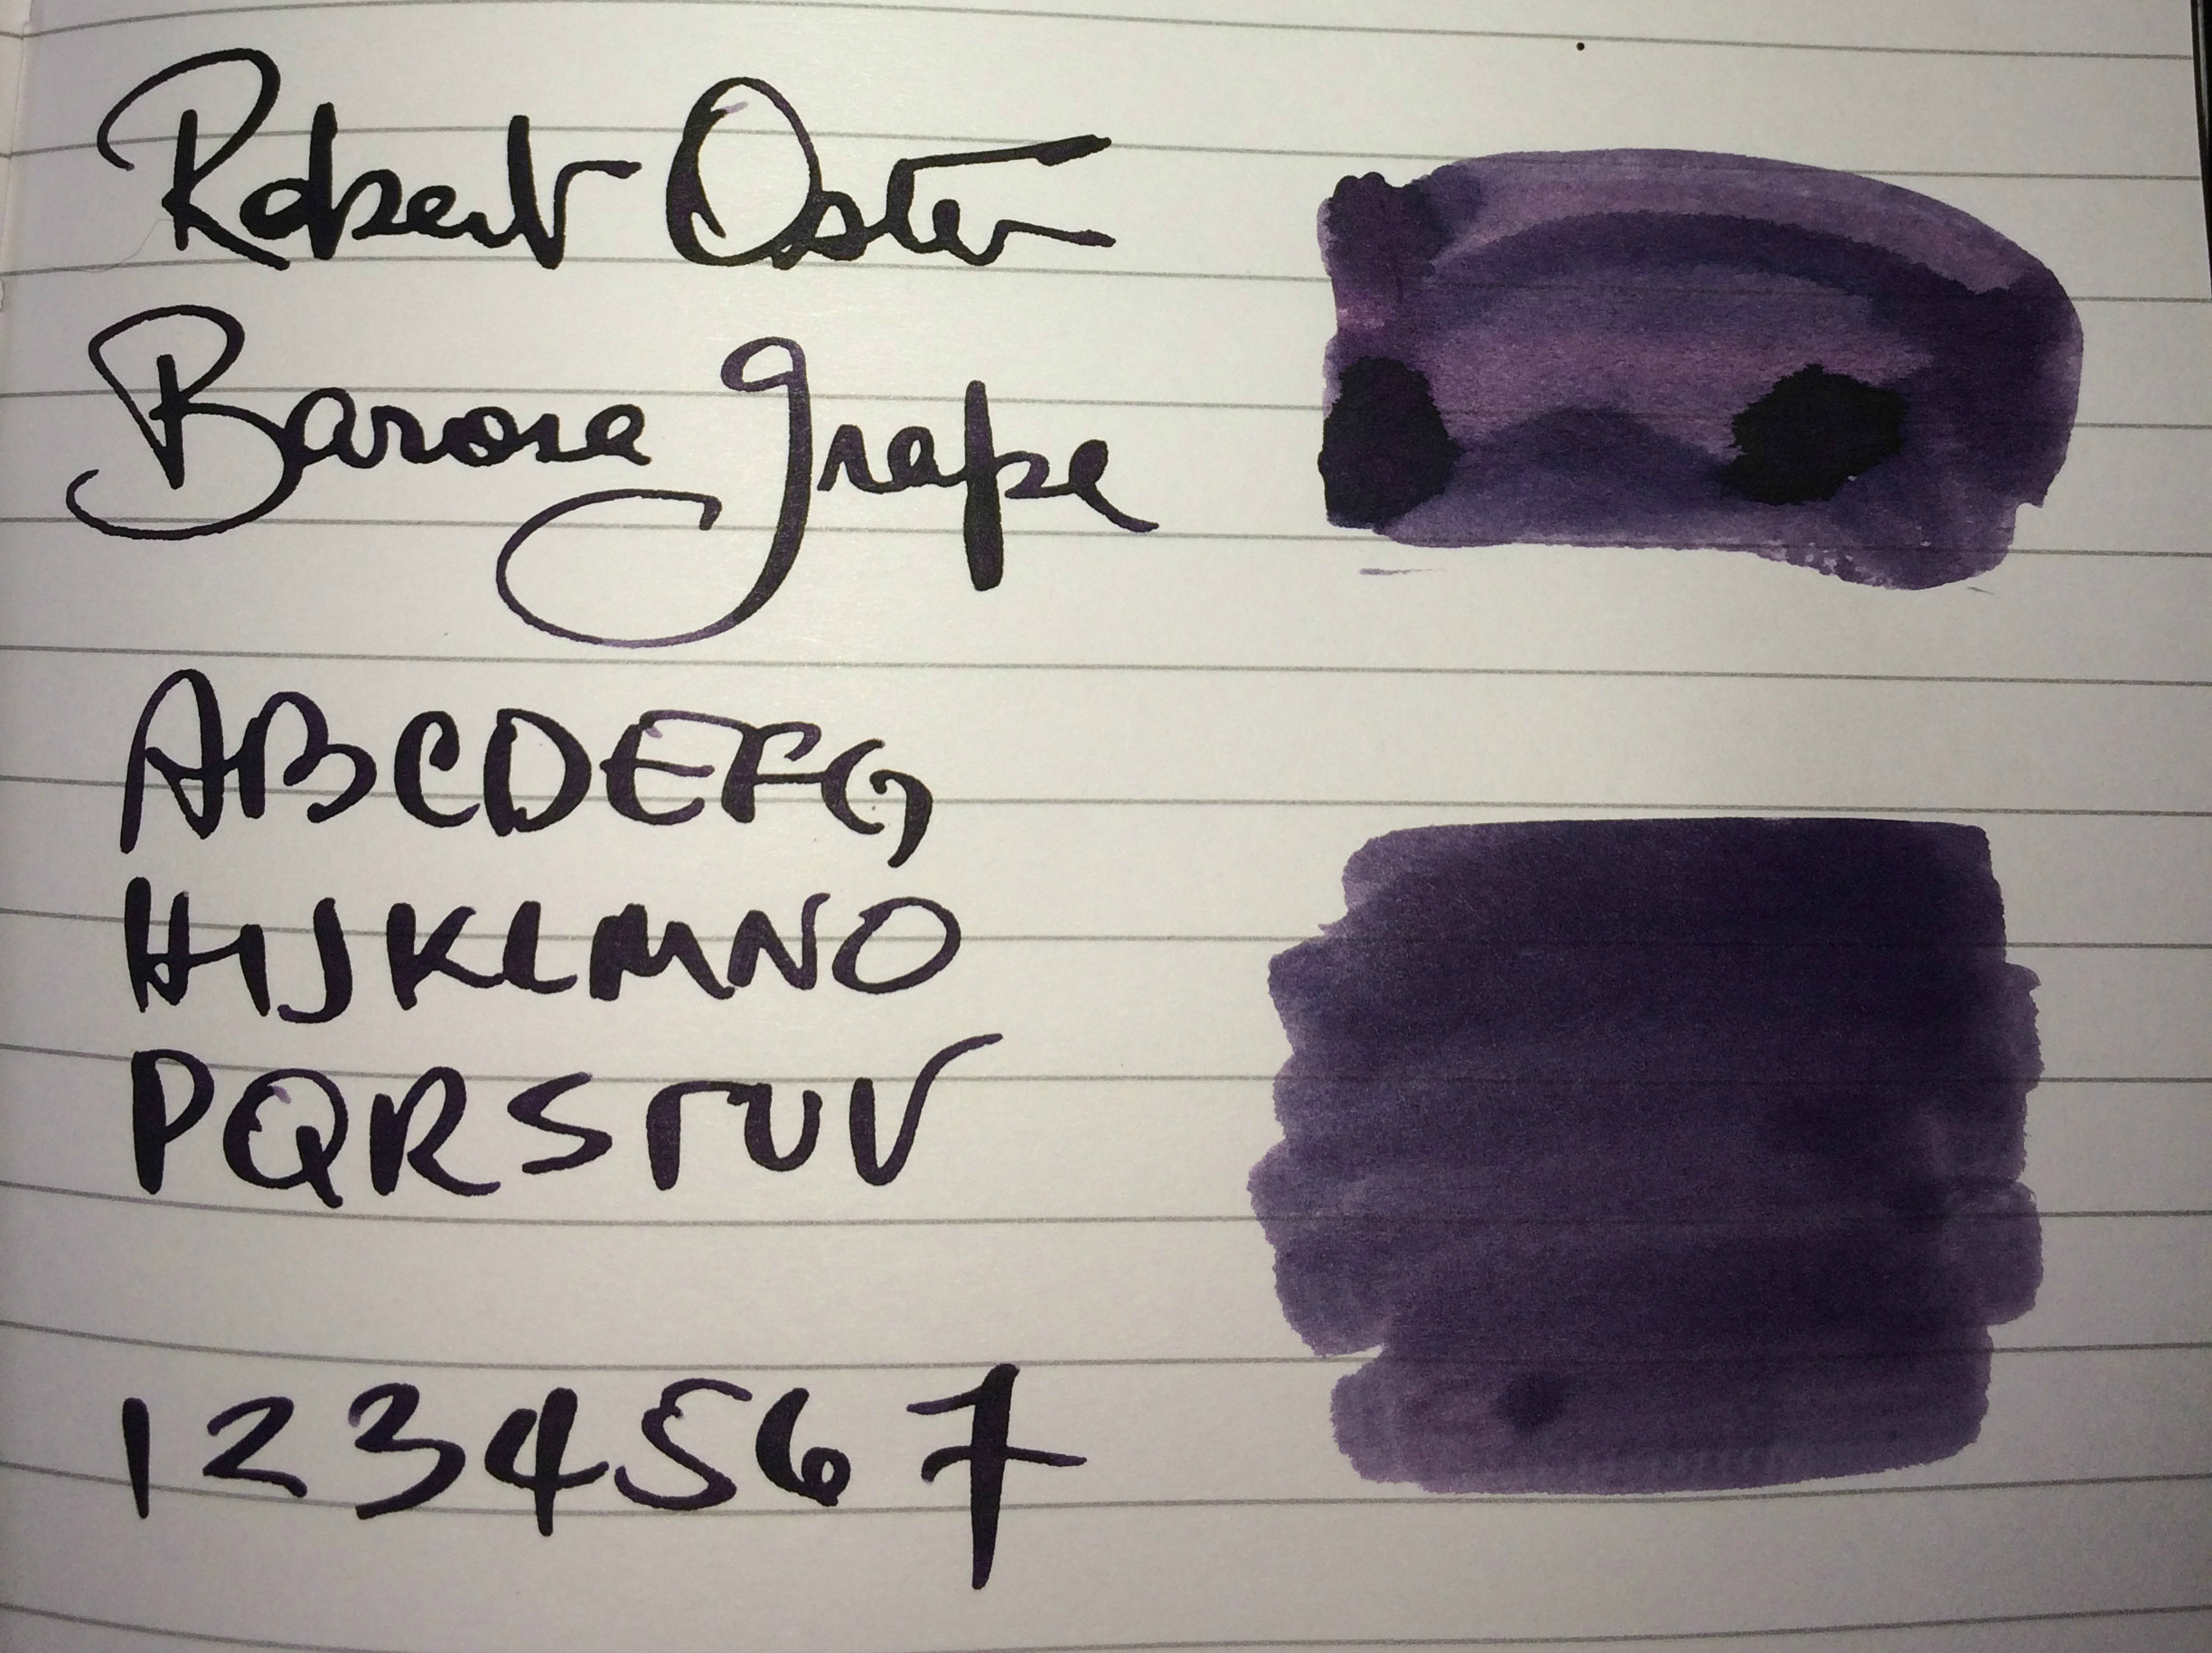 Robert Oster
Barosa grape
ABCDEFG
HIJKLMNO
PQRSTUV
1234567